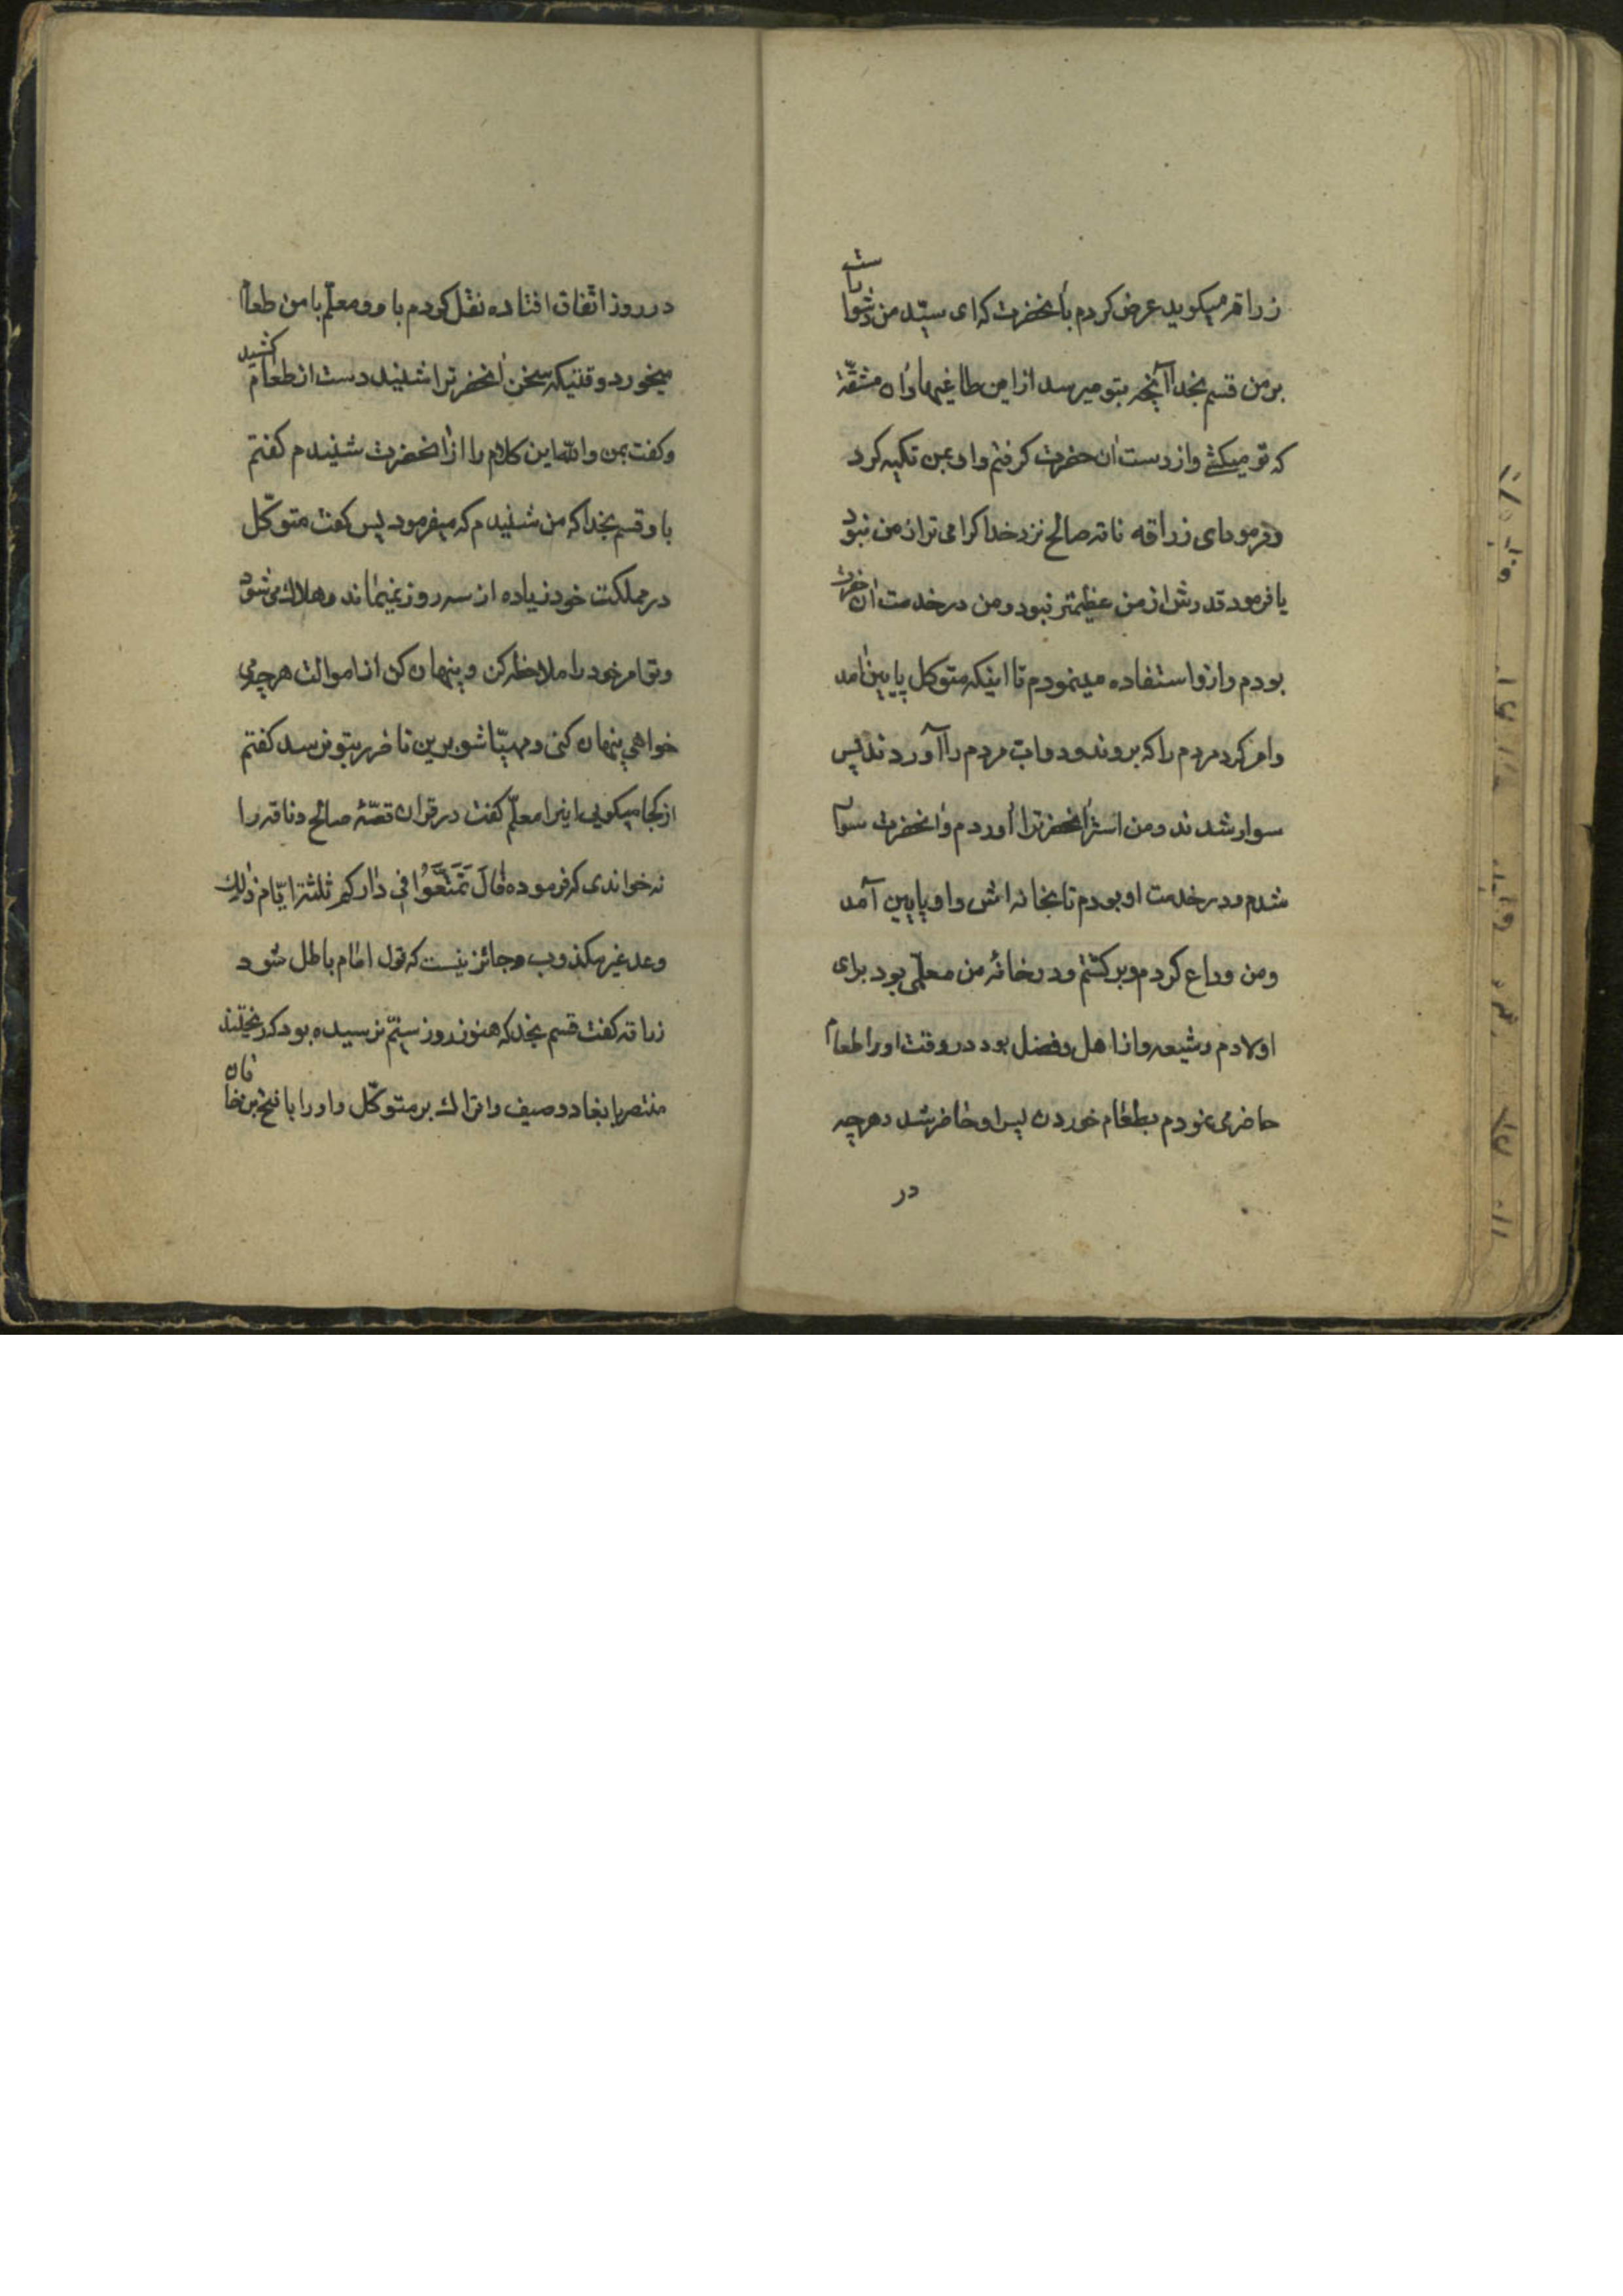 زراقه میکوید عرض کردم بآنحضرت که ای سیّد من دشوار است
بر من قسم بخدا آنچه بتو میرسد از این طاغیها و آن مشقّة
که تو میکشی و از دست آن حضرت کرفتم و او بمن تکیه کرد
و فرمود ای زراقه ناقه صالح نزد خدا کرامی تر از من نبود
یا فرمود قدرش از من عظیمتر نبود و من در خدمت آن حضرت
بودم و از او استفاده مینمودم تا اینکه متوکل پایین آمد
و امر کرد مردم را که بروند و دواب مردم را آوردند پس
سوار شدند و من استر آنحضرترا آوردم و آنحضرت سوار
شدم و در خدمت او بودم تا بخانه اش و او پایین آمد
و من وداع کردم و برکشتم و در خانهٔ من معلّمی بود برای
اولادم و شیعه و از اهل و فضل بود در وقت او را طعام
حاضر می نمودم بطعام خوردن پس او حاضر شد و هر چه
در
در روز اتّفاق افتاده نقل کردم با او و معلّم با من طعام
میخورد وقتیکه سخن آنحضرترا شنید دست از طعام کشید
و کفت بمن والله این کلام را از آنحضرت شنیدم کفتم
با و قسم بخدا که من شنیدم که میفرمود پس کفت متوکّل
در مملکت خود زیاده از سه روز نمیماند و هلاک می شود
و تو امر خود را ملاحظه کن و پنهان کن از اموالت هر چه می
خواهی پنهان کنی و مهیّا شو برین تا ضرر بتو نرسد کفتم
از کجا میکویی اینرا معلّم کفت در قران قصّهٔ صالح و ناقه را
نه خواندی که فرموده قالَ تَمَتَّعَوُا فی دارکم ثلثة ایّام ذلک
وعد غیر مکذوب و جائز نیست که قول امام باطل شود
زراقه کفت قسم بخدا که هنوز روز سیّم نرسیده بود که ریختند
منتصر با بغا و وصیف و اتراک بر متوکّل و او را با فتح بن خاقان